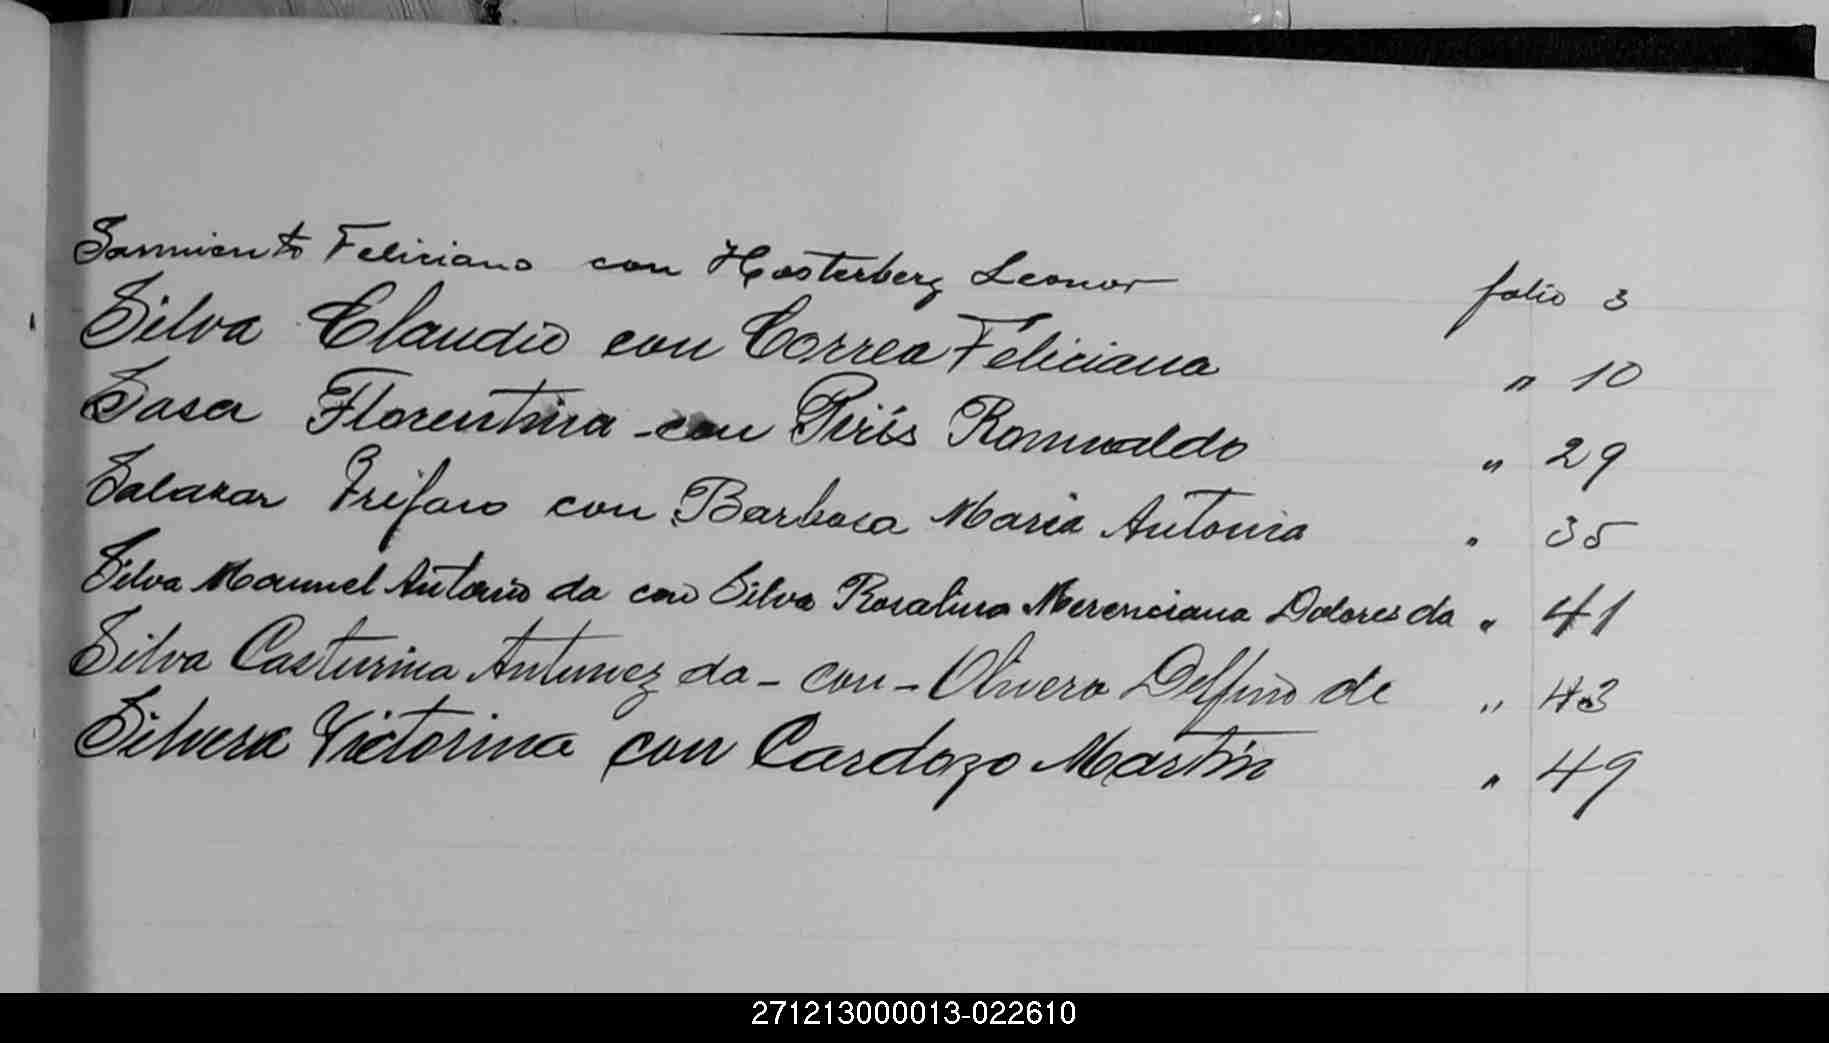 Sarmiento Feliciano con Hosterberg Leonor folio 3
Silva Claudio con Correa Feliciana " 10
Sasa Florentina - con Pirís Romualdo " 29
Salazar Trifaro con Barbosa Maria Antonia " 35
Silva Manuel Antonio da con Silva Rosalina Merenciana Dolores da " 41
Silva Casturina Antunez da - con - Olivera Delfino de " 43
Silvera Victorina con Cardozo Martín " 49
271213000013-022610